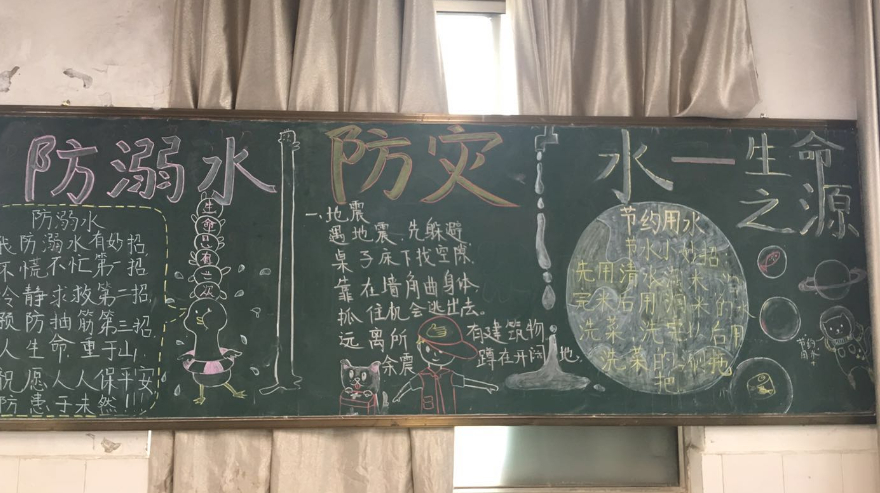 防溺水
防溺水
防溺水有妙招,
不慌不忙第一招,
冷静求救第二招,
预防抽筋第三招,
人生命重于山,
祝愿人人保平安
防患于未然!!
生命只有一次
防灾
一、地震
遇地震,先躲避
桌子床下找空隙
靠在墙角曲身体
抓住机会逃出去。
远离所有建筑物
余震蹲在开阔地.
水——生命
之源
节约用水
节水小妙招
先用清水
洗菜
洗菜的
把
节约用水